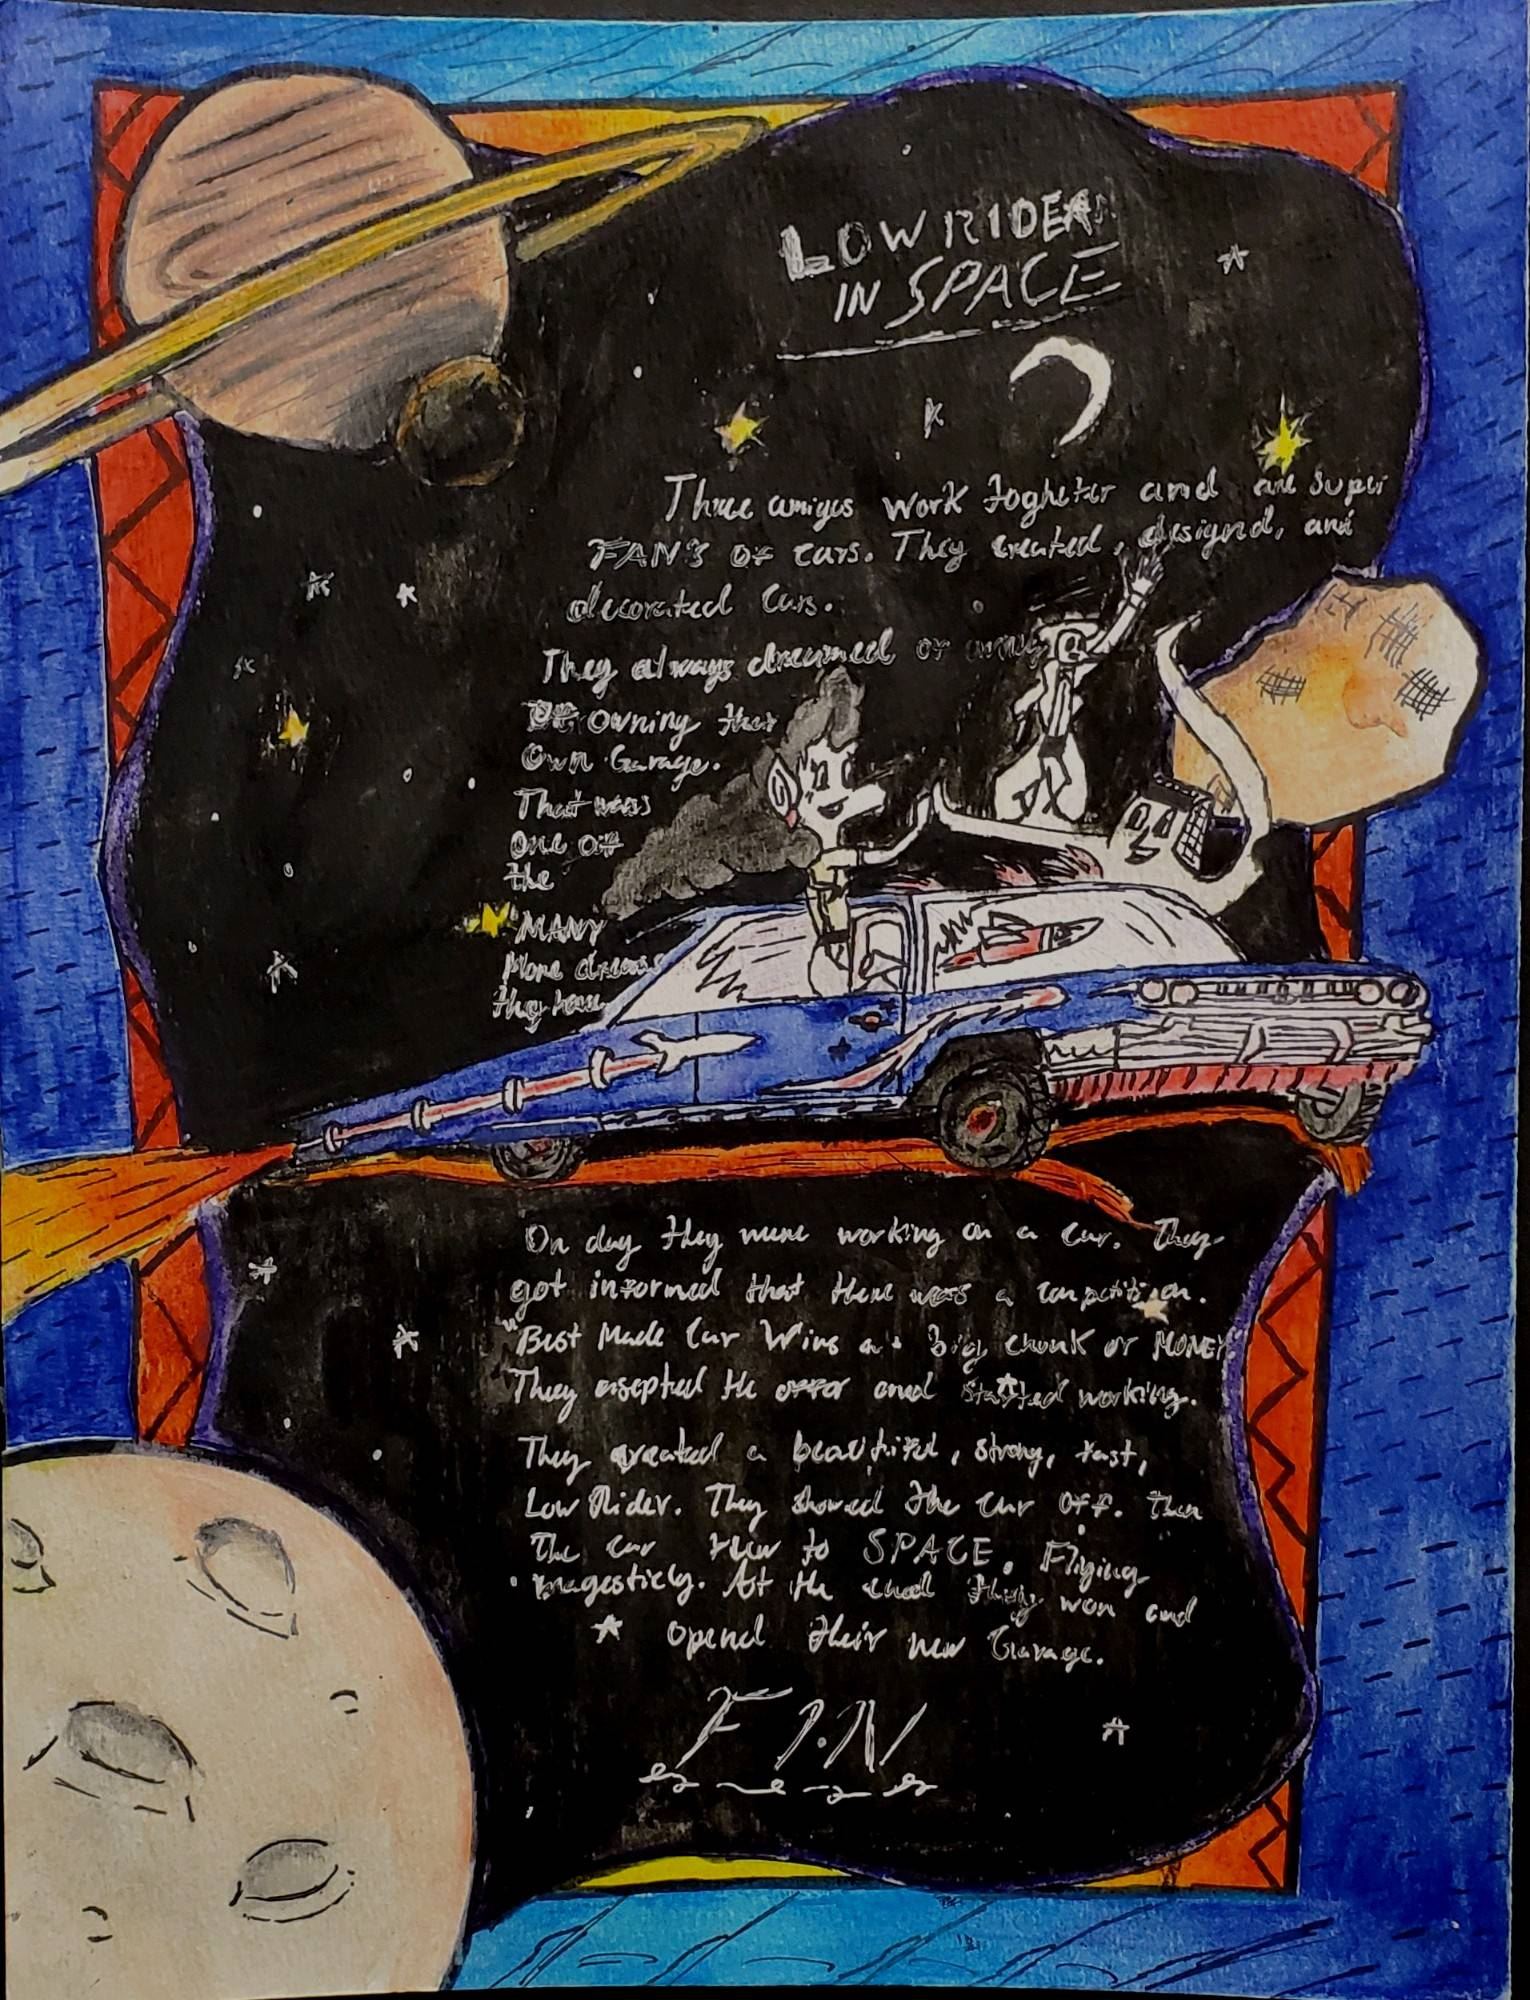 LOWRIDERS
IN SPACE
Three amigos work togheter and are super
FAN'S OF cars. They created, designed, and
decorated Cars.
They always dreamed of
Of Owning their
Own Garage.
That was
One of
the
MANY
More dreams
they have
On day they were working on a car. They
got informed that there was a conpetition.
"Best Made Car Wins a big chunk of MONEY.
They asepted the offor and started working.
They created a beautiful, strong, fast,
Low Rider. They showed the car off. Then
The car flew to SPACE. Flying
magesticly. At the end they won and
opend their new Garage.
FIN